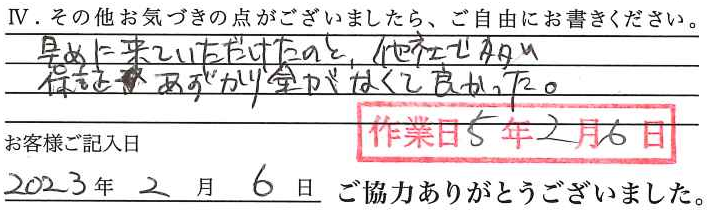 Ⅳ．その他お気づきの点がございましたら、ご自由にお書きください。
早めに来ていただけたのと、他社で多い
保証 あずかり金がなくて良かった。
作業日5年2月6日
お客様ご記入日
2023年 2 月 6 日 ご協力ありがとうございました。